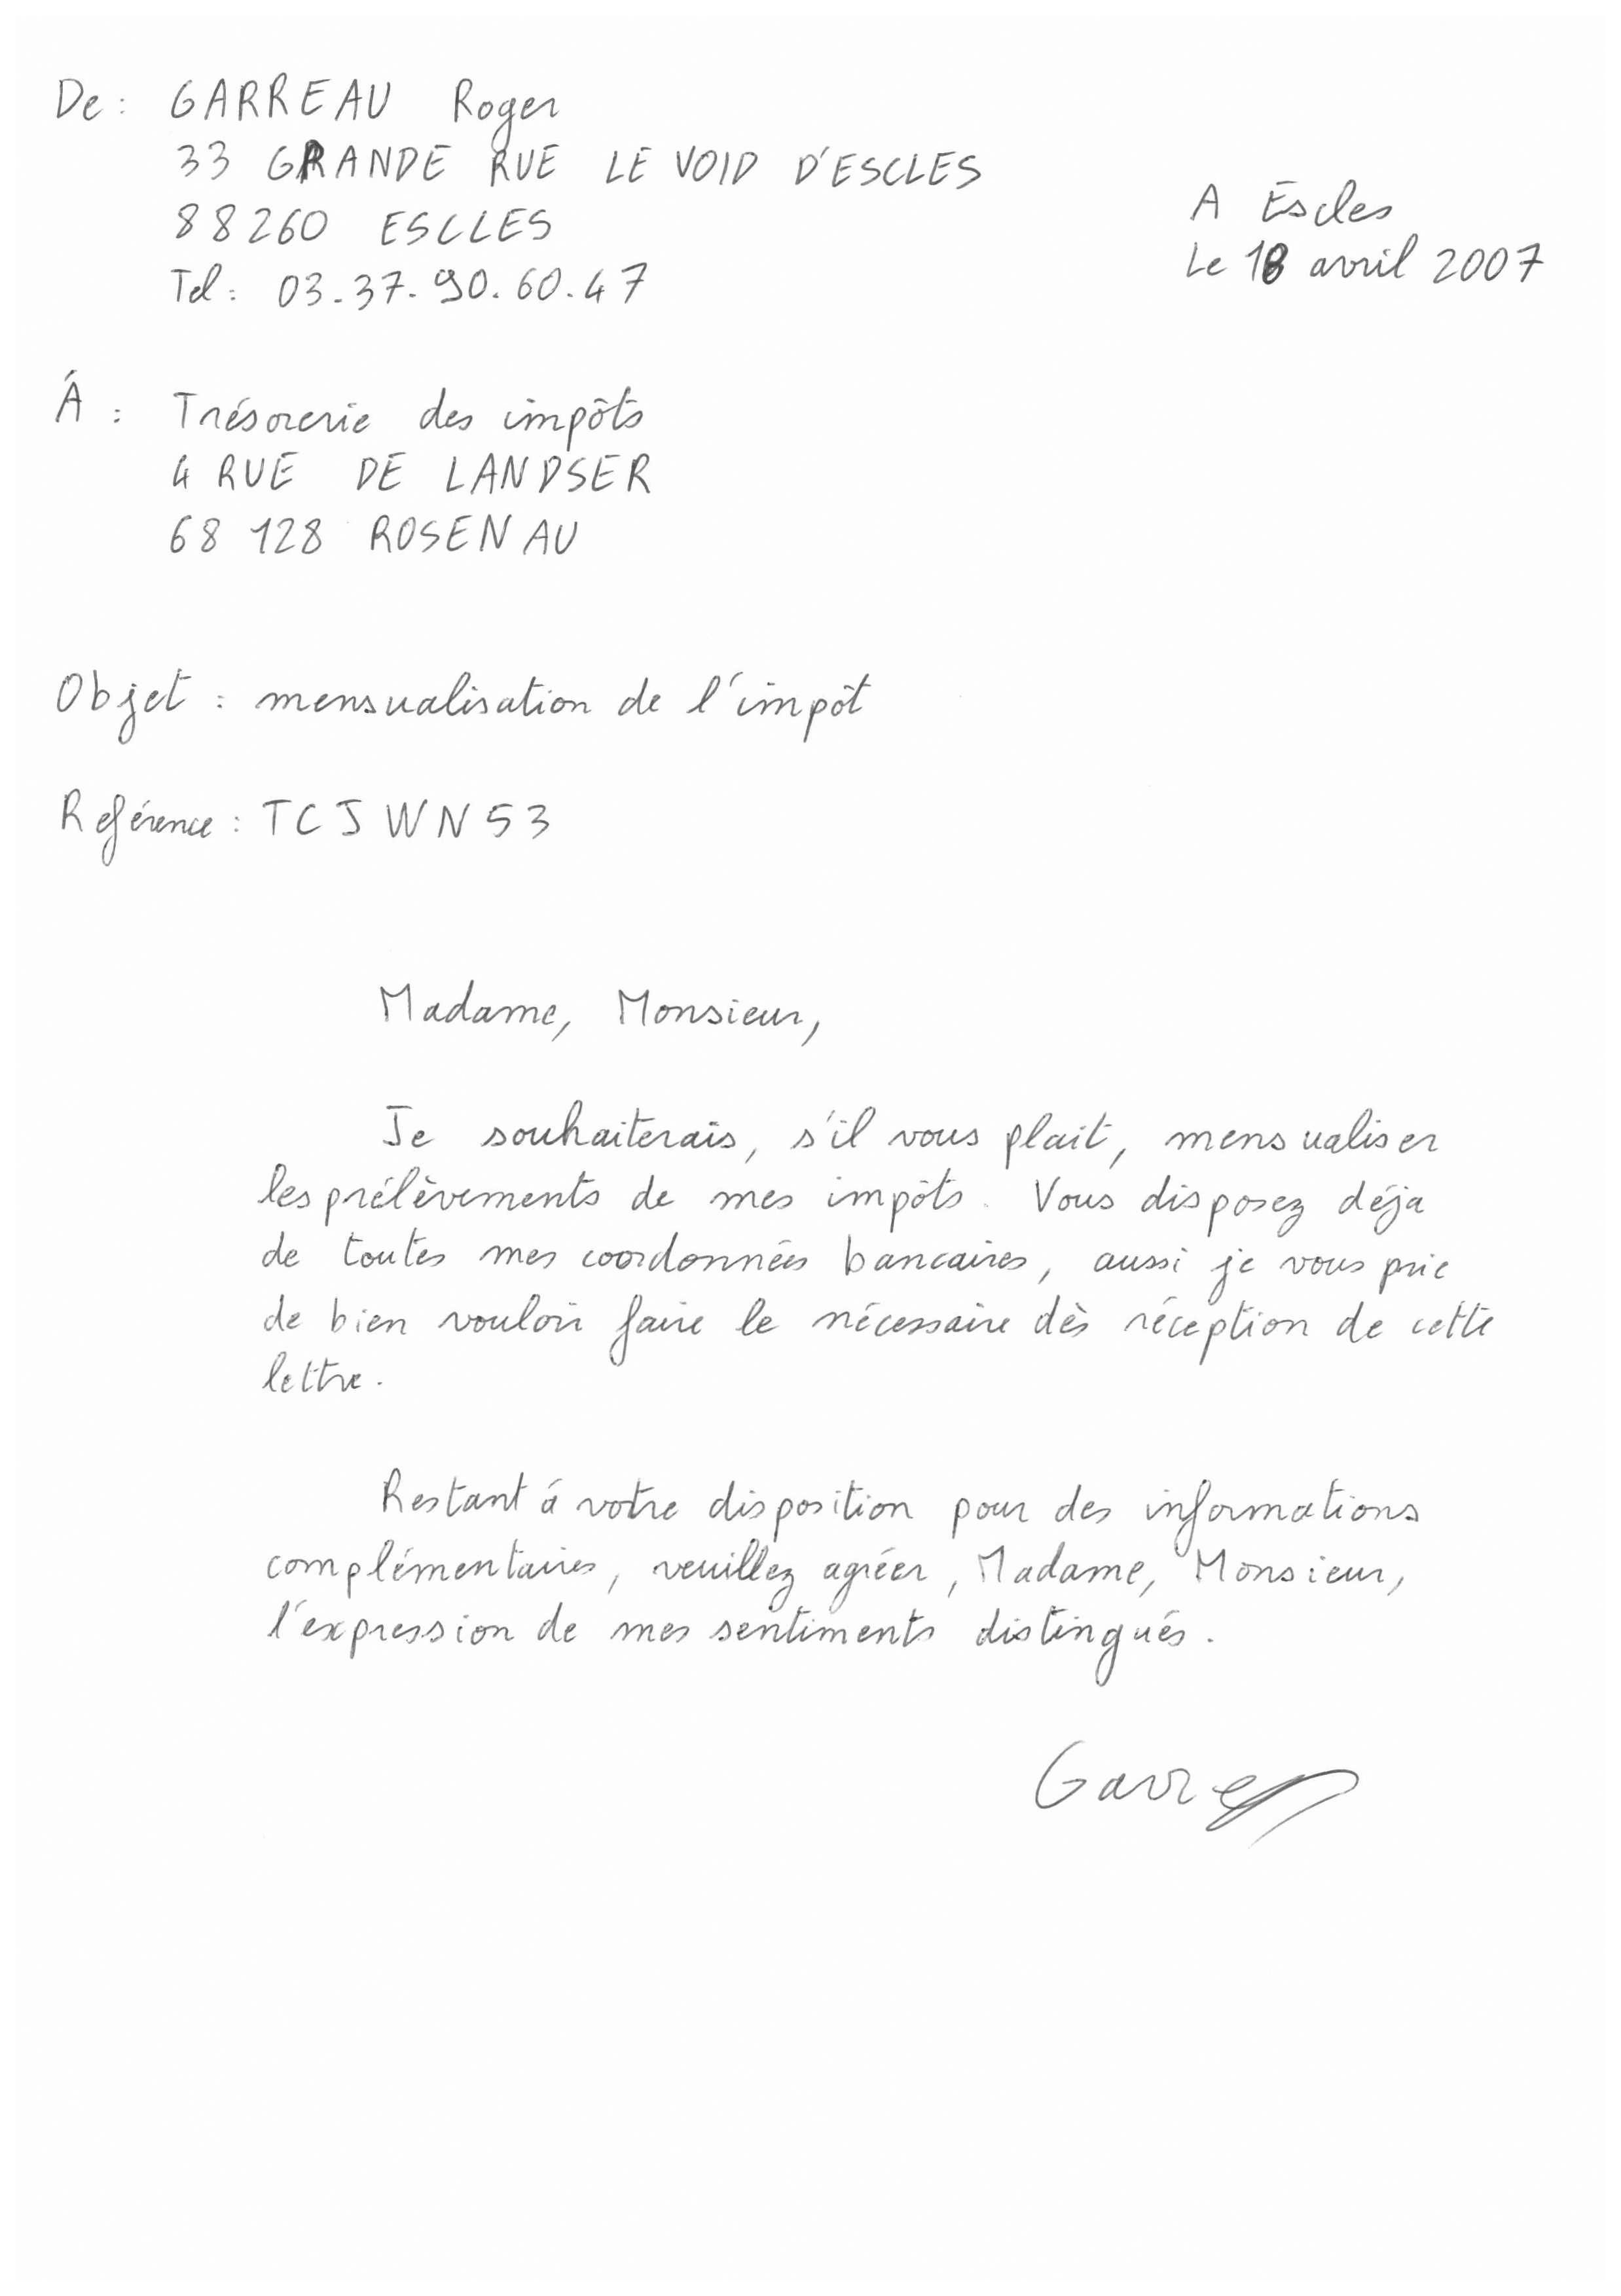 De : GARREAU Roger
33 GRANDE RUE LE VOID D'ESCLES
88260 ESCLES
Tel : 03.37.90.60.47
A Escles
Le 18 avril 2007
À : Trésorerie des impôts
4 RUE DE LANDSER
68 128 ROSENAU
Objet : mensualisation de l'impôt
Reférence : TCJWN53
Madame, Monsieur,
Je souhaiterais, s'il vous plait, mensualiser
les prélèvements de mes impôts. Vous disposez déja
de toutes mes coordonnées bancaires, aussi je vous prie
de bien vouloir faire le nécessaire dès réception de cette
lettre.
Restant à votre disposition pour des informations
complémentaires, veuillez agréer, Madame, Monsieur,
l'expression de mes sentiments distingués.